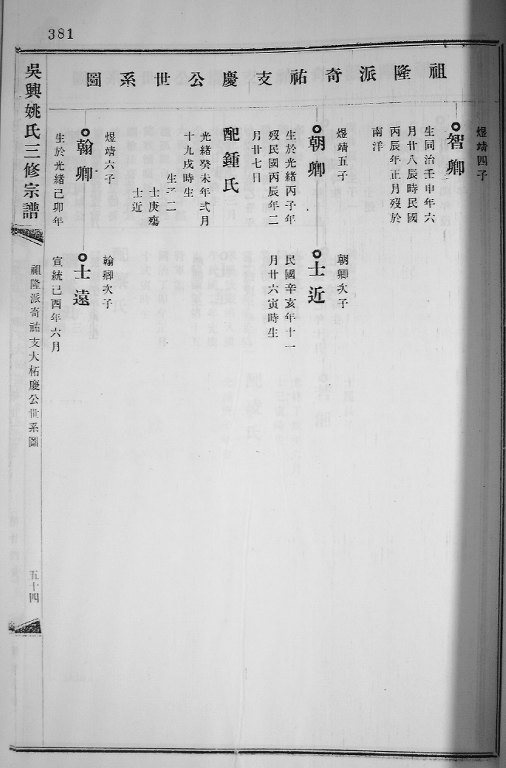 381
祖隆派奇祐支慶公世系圖
煜靖四子
智卿
生同治壬申年六
月廿八辰時民國
丙辰年正月歿於
南洋
煜靖五子
朝卿
生於光緒丙子年
歿民國丙辰年二
月廿七日
配鍾氏
光緒癸未年弍月
十九戌時生
生子二
士庚殤
士近
煜靖六子
翰卿
生於光緒己卯年
朝卿次子
士近
民國辛亥年十一
月廿六寅時生
翰卿次子
士遠
宣統己酉年六月
吳興姚氏三修宗譜
祖隆派奇祐支大柘慶公世系圖
五十四